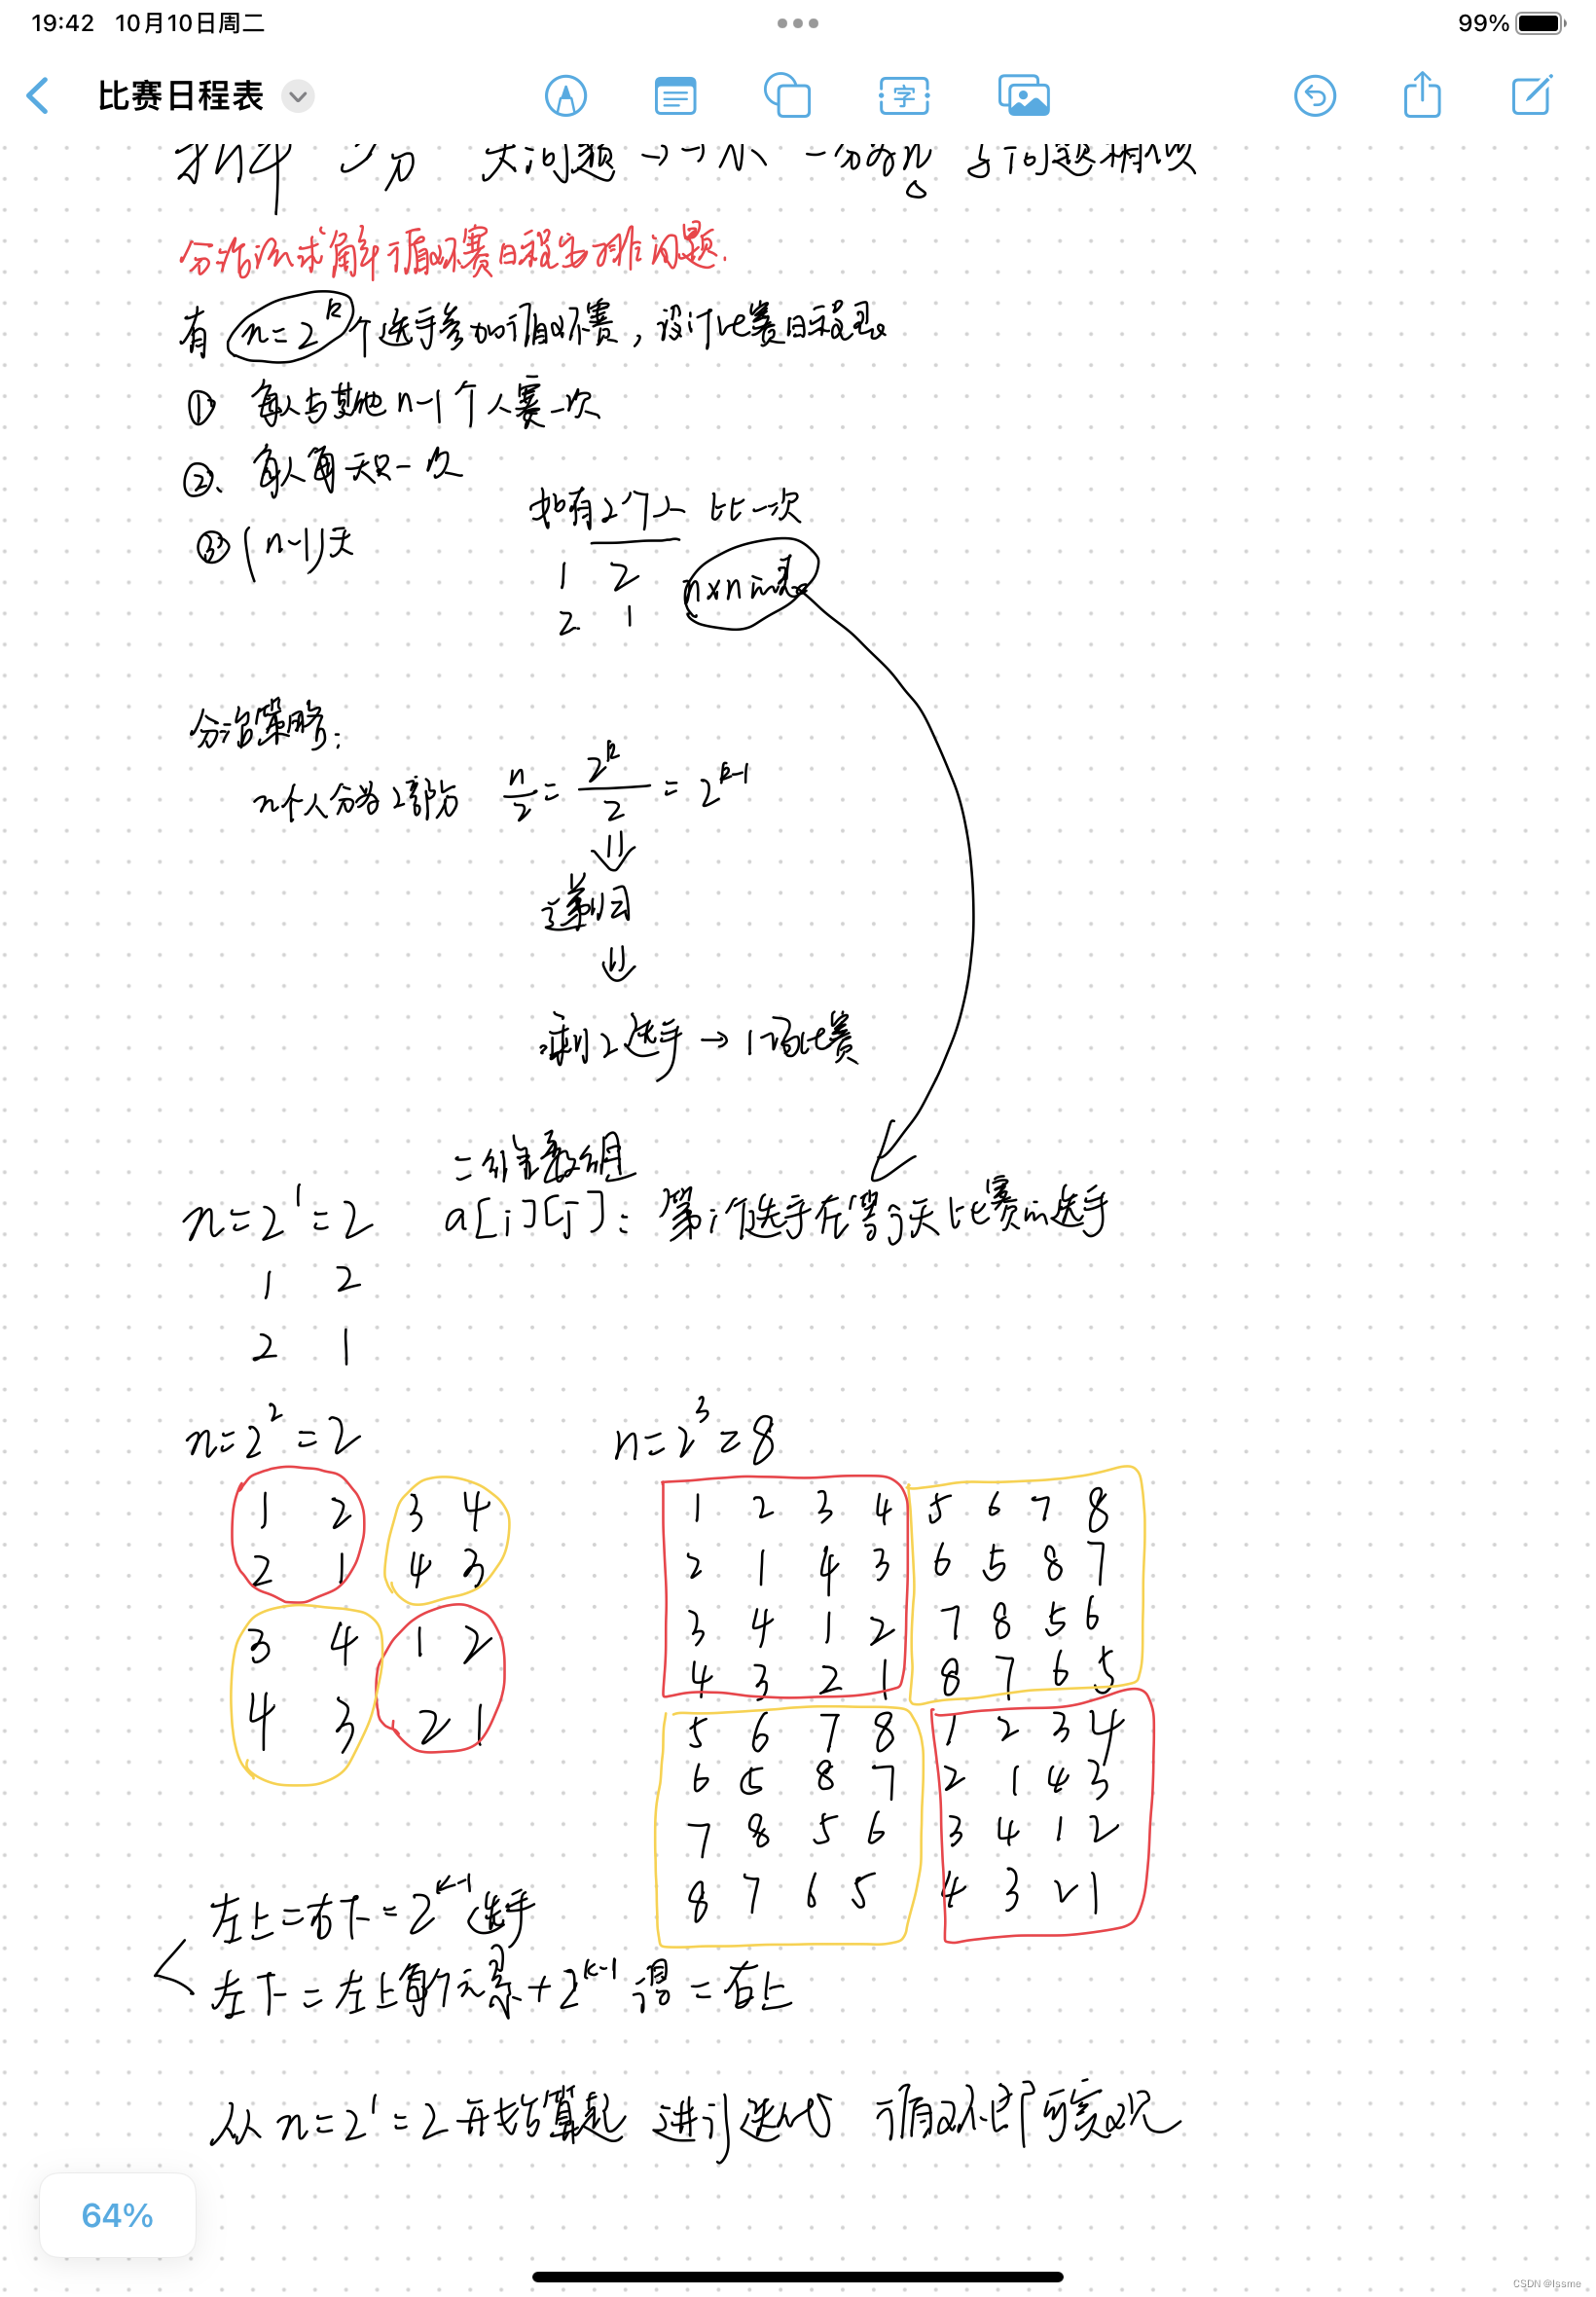 19:42 10月10日周二
99%
比赛日程表
字
大问题→
分治法求解循环赛日程安排问题.
有 n=2^k 个选手参加循环赛,设计比赛日程表
① 每人与其他n-1个人赛一次
②、每人每天只一次
③ (n-1)天
如有2个人 比一次
1 2
2 1
n×n的表
分治策略:
n个人分为2部分 n/2 = 2^k/2 = 2^(k-1)
⇓
递归
⇓
剩2选手→1场比赛
二维数组
n=2^1=2 a[i][j]: 第i个选手在第j天比赛的选手
1 2
2 1
n=2^2=2 n=2^3=8
1 2 3 4
2 1 4 3
3 4 1 2
4 3 2 1
1 2 3 4 5 6 7 8
2 1 4 3 6 5 8 7
3 4 1 2 7 8 5 6
4 3 2 1 8 7 6 5
5 6 7 8 1 2 3 4
6 5 8 7 2 1 4 3
7 8 5 6 3 4 1 2
8 7 6 5 4 3 2 1
左上=右下=2^(k-1)选手
左下=左上每个元素+2^(k-1) 得=右上
从n=2^1=2开始算起 进行迭代 循环即可实现
64%
CSDN @Issme